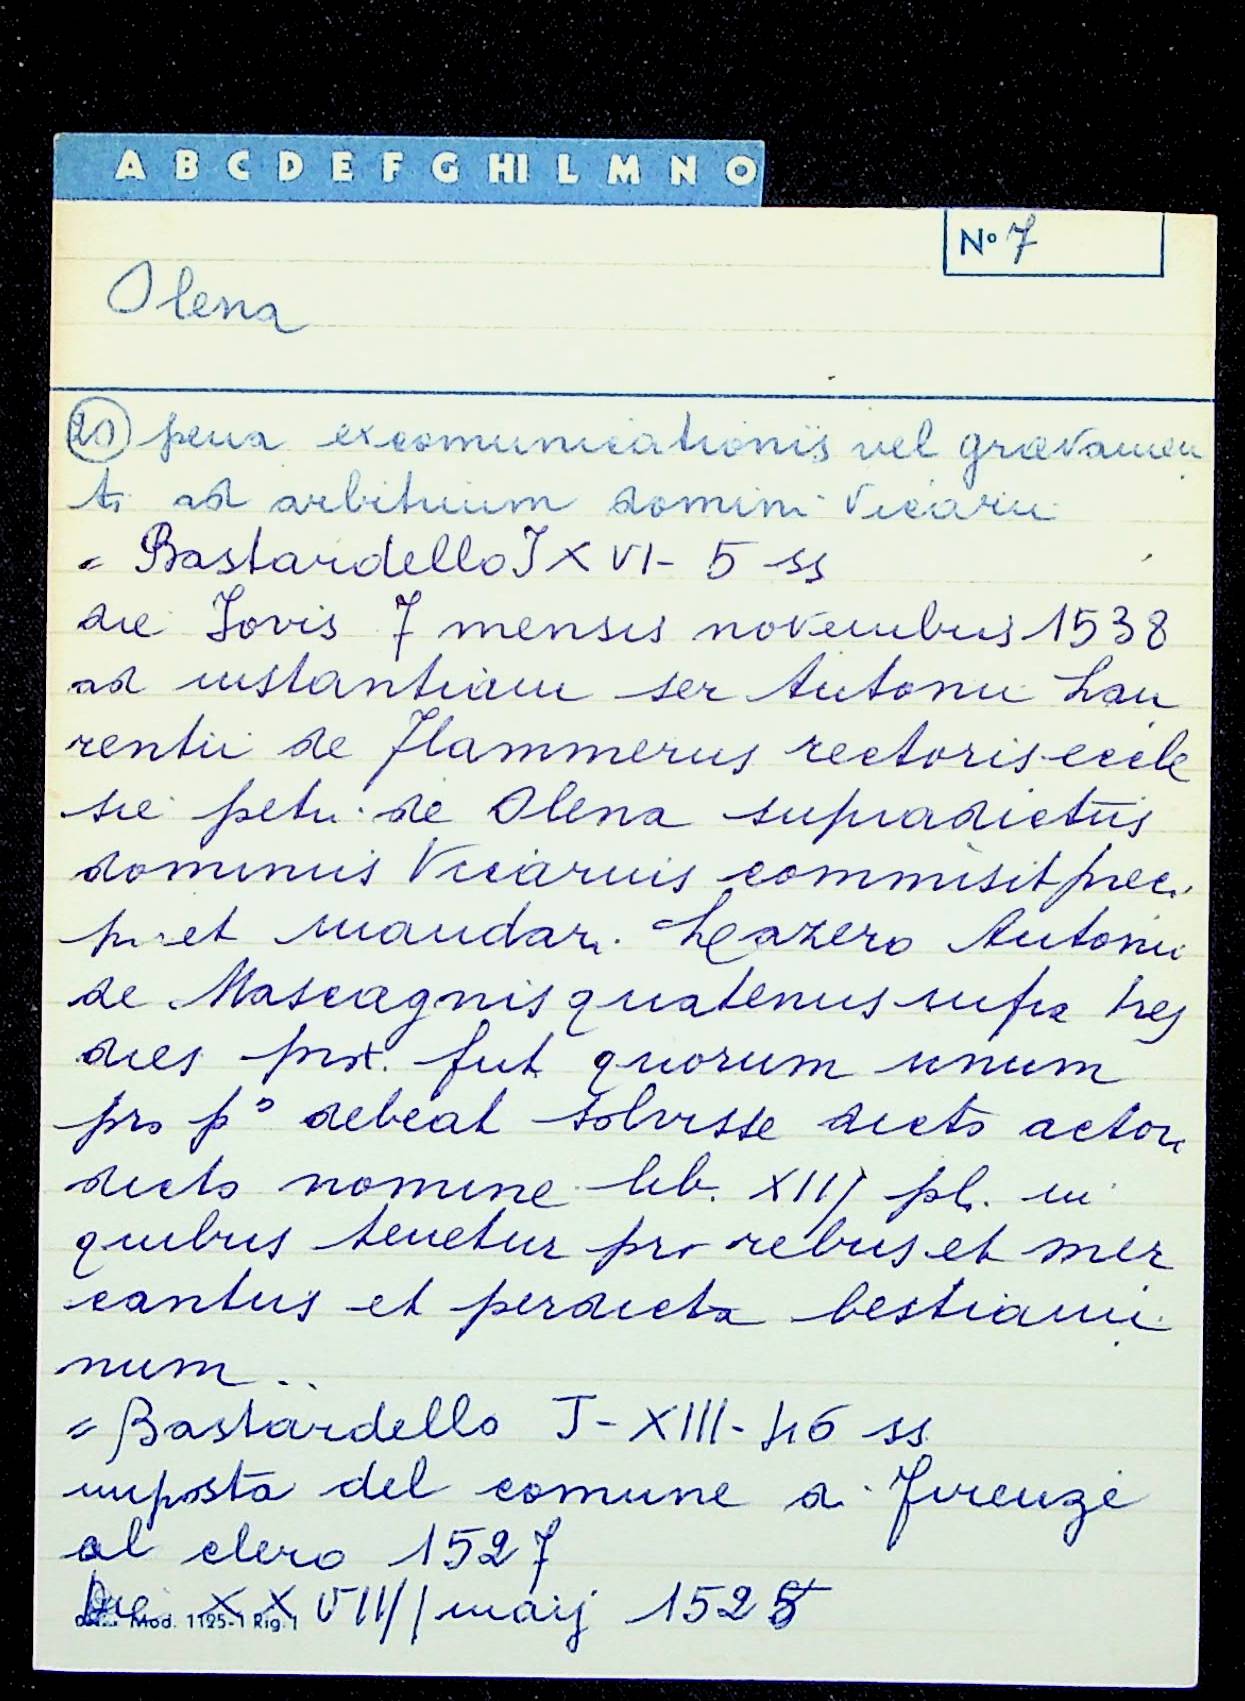 A B C D E F G HI L M N O
N° 7
Olena
pena excomunicationis vel gravamen
ti ad arbitrium domini Vicarii
= Bastardello I XVI - 5 ss
die Jovis 7 mensis novembris 1538
ad instantiam ser Antonii Lau
rentii de Flammeriis rectoris eccle
sie petri de Olena supradictus
dominus Vicarius commisit preci
pi et mandari Antonii
de Mascagnis quatenus infra tres
dies prox. fut quorum unum
pro p° debeat solvisse dicto actori
dicto nomine lib. XIIJ pl. in
quibus tenetur pro rebus et mer
cantiis et perdicta bestiami
num ..
= Bastardello I - XIII - 46 ss
imposta del comune di Firenze
al clero 1527
Die XXVIIII maij 1525
Mod. 1125-1 Rig. 1